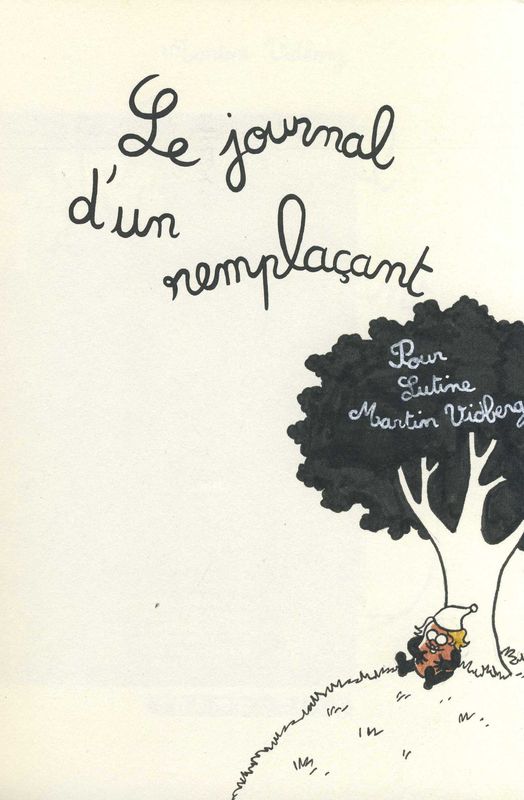 Le journal
d'un
remplaçant
Pour
Lutine
Martin Vidberg